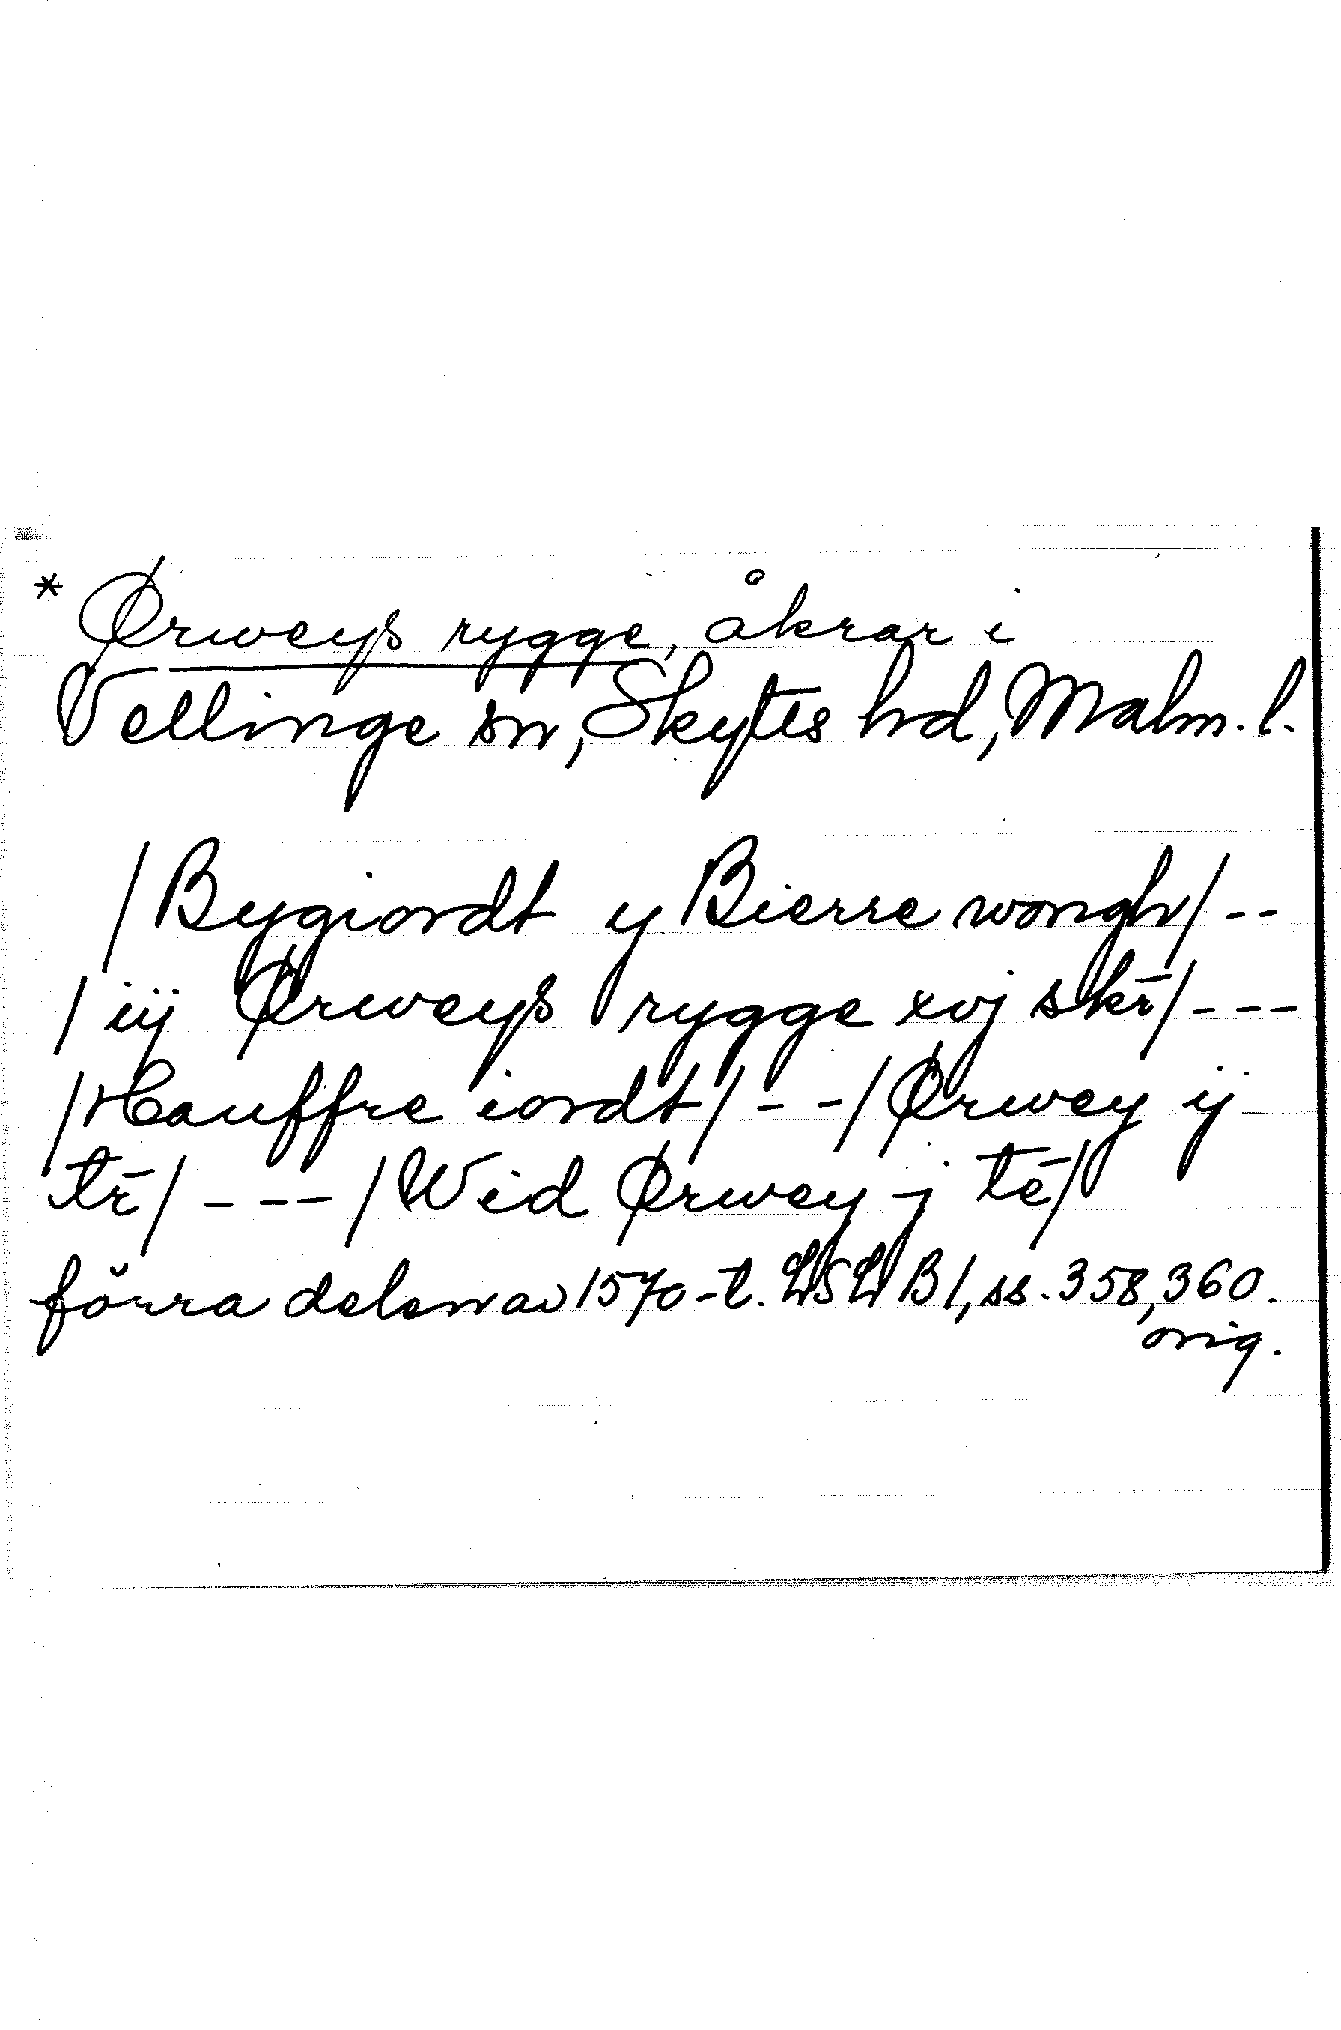 * Ørweys rygge, åkrar i
Vellinge sn, Skytts hd, Malm. l.
/Bygiordt y Bierre wongh/--
/iij Ørweys rygge xvj skr̄/---
/Hauffre iordt/--/Ørwey ij
tr̄/---/Wid Ørwey j tē/
förra delen av 1570-t. LSL B1, ss. 358, 360.
orig.